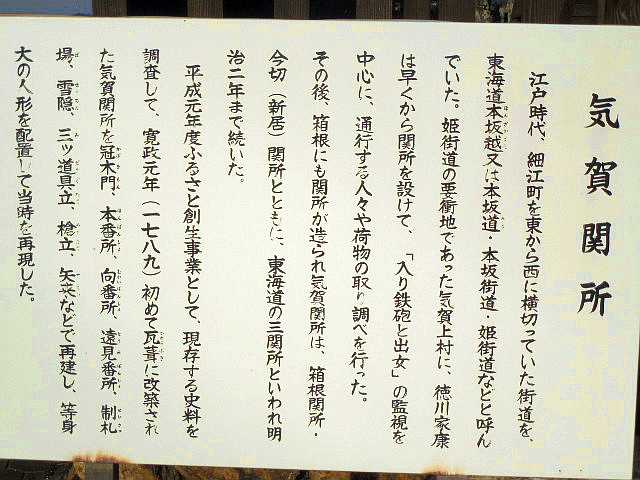 気賀関所
江戸時代、細江町を東から西に横切っていた街道を、
東海道本坂越又は本坂道・本坂街道・姫街道などと呼ん
でいた。姫街道の要衝地であった気賀上村に、徳川家康
は早くから関所を設けて、「入り鉄砲と出女」の監視を
中心に、通行する人々や荷物の取り調べを行った。
その後、箱根にも関所が造られ気賀関所は、箱根関所・
今切(新居)関所とともに、東海道の三関所といわれ明
治二年まで続いた。
平成元年度ふるさと創生事業として、現存する史料を
調査して、寛政元年(一七八九)初めて瓦葺に改築され
た気賀関所を冠木門、本番所、向番所、遠見番所、制札
場、雪隠、三ッ道具立、槍立、矢来などで再建し、等身
大の人形を配置して当時を再現した。